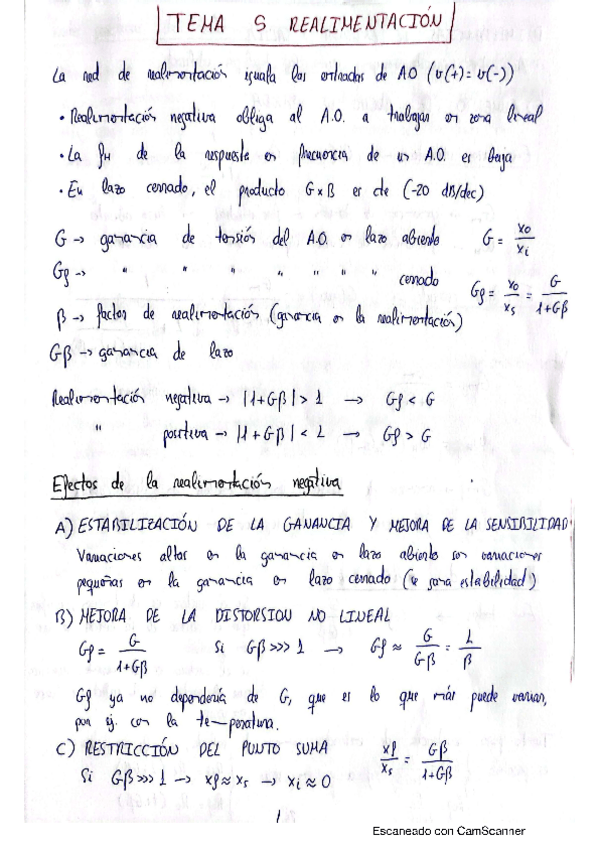 TEMA 5 REALIMENTACIÓN
La red de realimentación iguala las entradas de A.O (v(+) = v(-))
• Realimentación negativa obliga al A.O. a trabajar en zona lineal
• La fH de la respuesta en frecuencia de un A.O. es baja
• En lazo cerrado, el producto G x B es cte (-20 dB/dec)
G → ganancia de tensión del A.O. en lazo abierto G = xo/xi
Gf → " " " " " " " cerrado Gf = xo/xs = G/1+Gβ
β → factor de realimentación (ganancia en la realimentación)
Gβ → ganancia de lazo
Realimentación negativa → |1+Gβ| > 1 → Gf < G
" positiva → |1+Gβ| < 1 → Gf > G
Efectos de la realimentación negativa
A) ESTABILIZACIÓN DE LA GANANCIA Y MEJORA DE LA SENSIBILIDAD
Variaciones altas en la ganancia en lazo abierto son variaciones
pequeñas en la ganancia en lazo cerrado (se gana estabilidad)
B) MEJORA DE LA DISTORSION NO LINEAL
Gf = G/1+Gβ Si Gβ >>> 1 → Gf ≈ G/Gβ = 1/β
Gf ya no dependería de G, que es lo que más puede variar,
por ej. con la temperatura.
C) RESTRICCIÓN DEL PUNTO SUMA xf/xs = Gβ/1+Gβ
Si Gβ >>> 1 → xf ≈ xs → xi ≈ 0
1
Escaneado con CamScanner